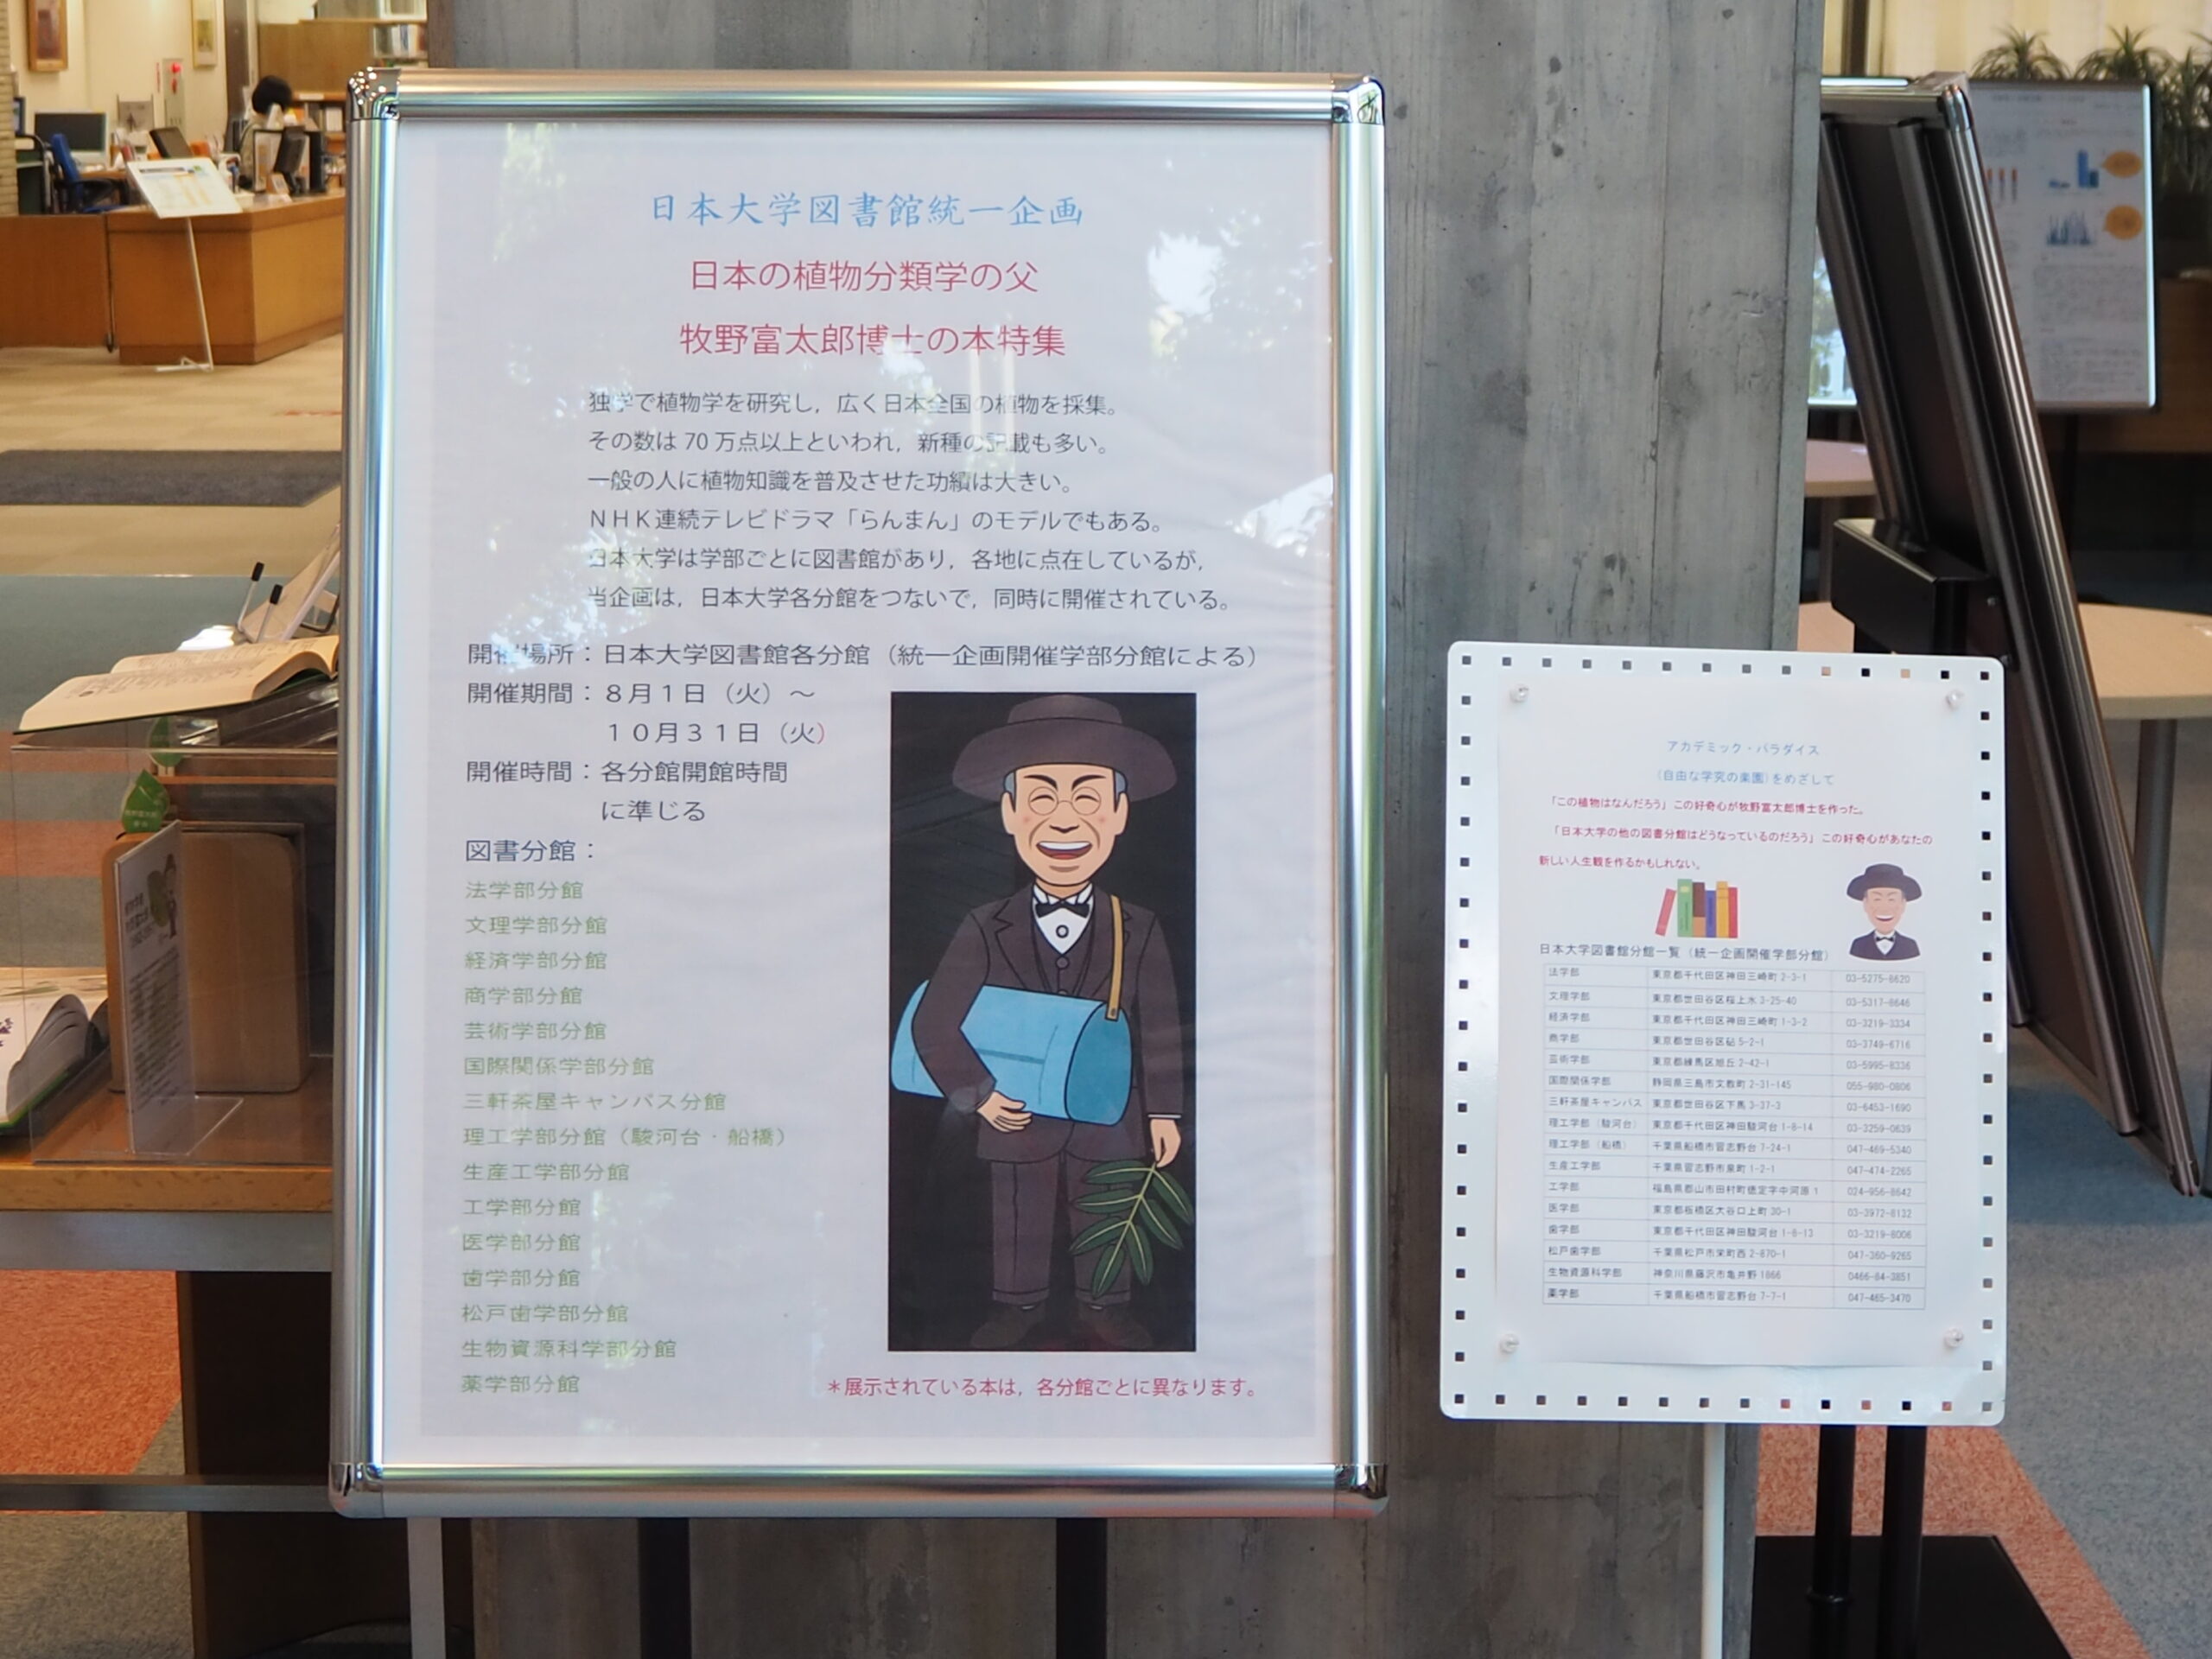 日本大学図書館統一企画
日本の植物分類学の父
牧野富太郎博士の本特集
独学で植物学を研究し，広く日本全国の植物を採集。
その数は70万点以上といわれ，新種の記載も多い。
一般の人に植物知識を普及させた功績は大きい。
ＮＨＫ連続テレビドラマ「らんまん」のモデルでもある。
日本大学は学部ごとに図書館があり，各地に点在しているが，
当企画は，日本大学各分館をつないで，同時に開催されている。
開催場所：日本大学図書館各分館（統一企画開催学部分館による）
開催期間：８月１日（火）～
１０月３１日（火）
開催時間：各分館開館時間
に準じる
図書分館：
法学部分館
文理学部分館
経済学部分館
商学部分館
芸術学部分館
国際関係学部分館
三軒茶屋キャンパス分館
理工学部分館（駿河台・船橋）
生産工学部分館
工学部分館
医学部分館
歯学部分館
松戸歯学部分館
生物資源科学部分館
薬学部分館
＊展示されている本は，各分館ごとに異なります。
アカデミック・パラダイス
（自由な学究の楽園）をめざして
「この植物はなんだろう」この好奇心が牧野富太郎博士を作った。
「日本大学の他の図書分館はどうなっているのだろう」この好奇心があなたの
新しい人生観を作るかもしれない。
日本大学図書館分館一覧（統一企画開催学部分館）
法学部 東京都千代田区神田三崎町2-3-1 03-5275-8620
文理学部 東京都世田谷区桜上水3-25-40 03-5317-8646
経済学部 東京都千代田区神田三崎町1-3-2 03-3219-3334
商学部 東京都世田谷区砧5-2-1 03-3749-6716
芸術学部 東京都練馬区旭丘2-42-1 03-5995-8336
国際関係学部 静岡県三島市文教町2-31-145 055-980-0806
三軒茶屋キャンパス 東京都世田谷区下馬3-37-3 03-6453-1690
理工学部（駿河台） 東京都千代田区神田駿河台1-8-14 03-3259-0639
理工学部（船橋） 千葉県船橋市習志野台7-24-1 047-469-5340
生産工学部 千葉県習志野市泉町1-2-1 047-474-2265
工学部 福島県郡山市田村町徳定字中河原1 024-956-8642
医学部 東京都板橋区大谷口上町30-1 03-3972-8132
歯学部 東京都千代田区神田駿河台1-8-13 03-3219-8006
松戸歯学部 千葉県松戸市栄町西2-870-1 047-360-9265
生物資源科学部 神奈川県藤沢市亀井野1866 0466-84-3851
薬学部 千葉県船橋市習志野台7-7-1 047-465-3470